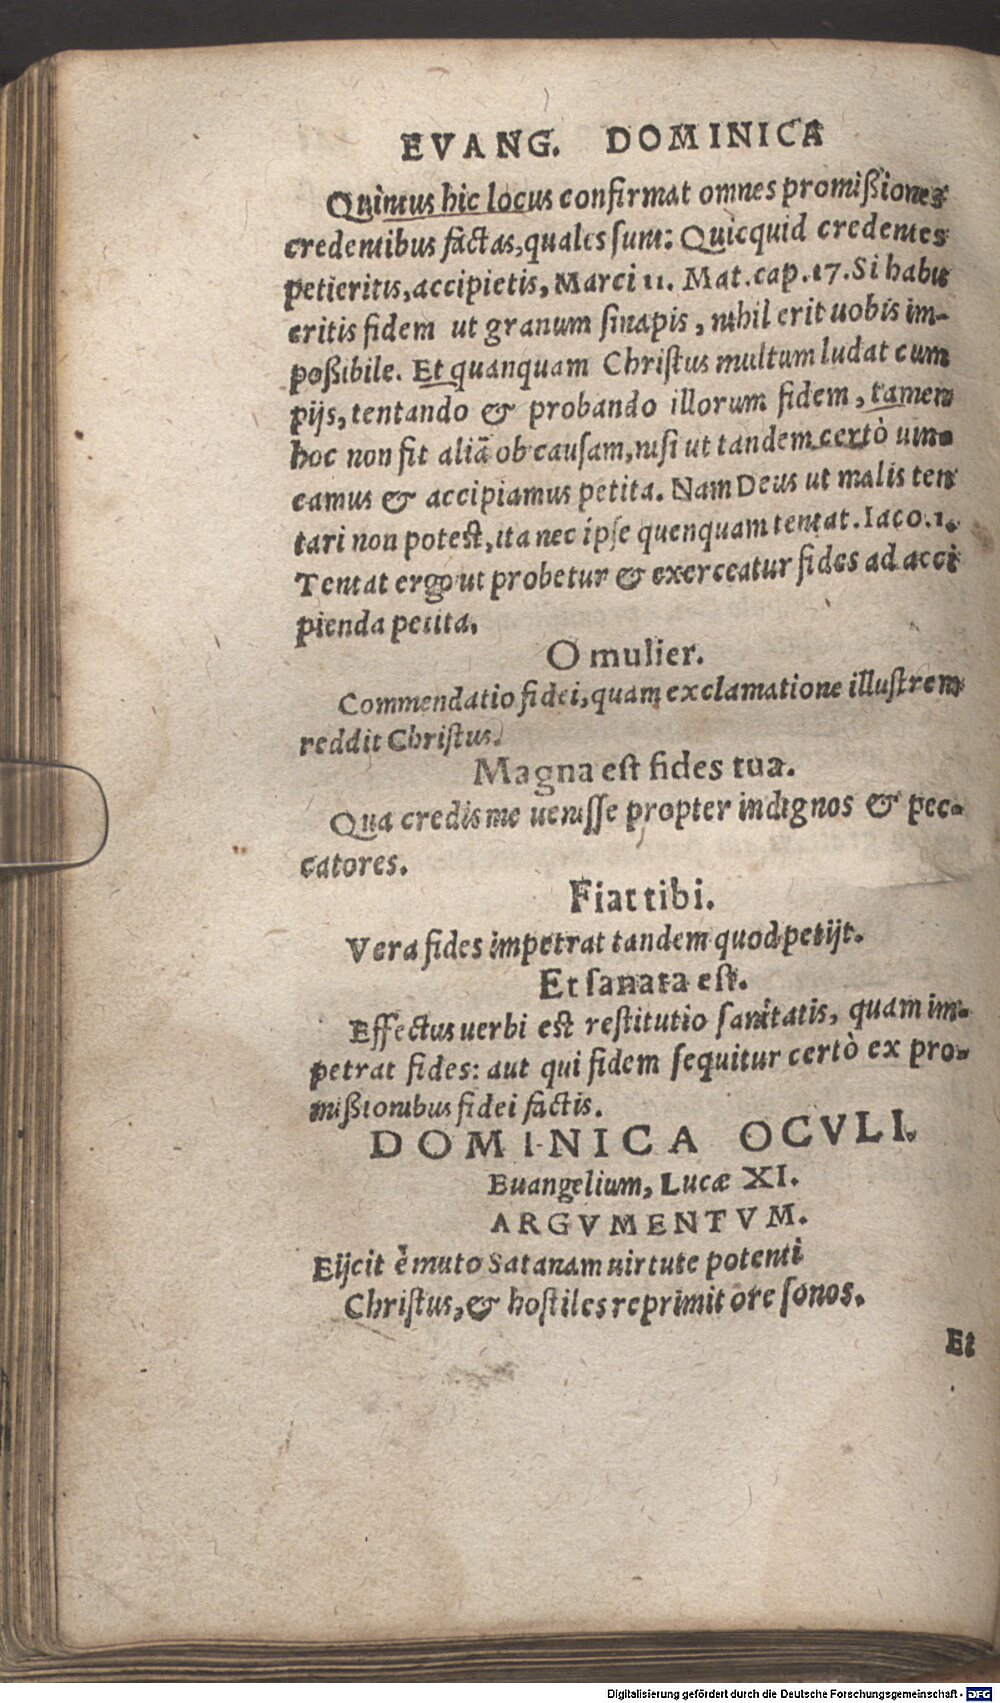 EVANG. DOMINICA
Quintus hic locus confirmat omnes promißiones
credentibus factas, quales sunt: Quicquid credentes
petieritis, accipietis, Marci 11. Mat. cap. 17. Si habu
eritis fidem ut granum sinapis, nihil erit uobis im-
poßibile. Et quanquam Christus multum ludat cum
pijs, tentando & probando illorum fidem, tamen
hoc non fit aliā ob causam, nisi ut tandem certò uin-
camus & accipiamus petita. Nam Deus ut malis ten
tari non potest, ita nec ipse quenquam tentat. Iaco. 1.
Tentat ergo ut probetur & exerceatur fides ad acci
pienda petita.
O mulier.
Commendatio fidei, quam exclamatione illustrem
reddit Christus.
Magna est fides tua.
Qua credis me uenisse propter indignos & pec-
catores.
Fiat tibi.
Vera fides impetrat tandem quod petijt.
Et sanata est.
Effectus uerbi est restitutio sanitatis, quam im-
petrat fides: aut qui fidem sequitur certò ex pro-
mißionibus fidei factis.
DOMINICA OCVLI.
Euangelium, Lucæ XI.
ARGVMENTVM.
Eijcit è muto Satanam uirtute potenti
Christus, & hostiles reprimit ore sonos.
Et
Digitalisierung gefördert durch die Deutsche Forschungsgemeinschaft - DFG